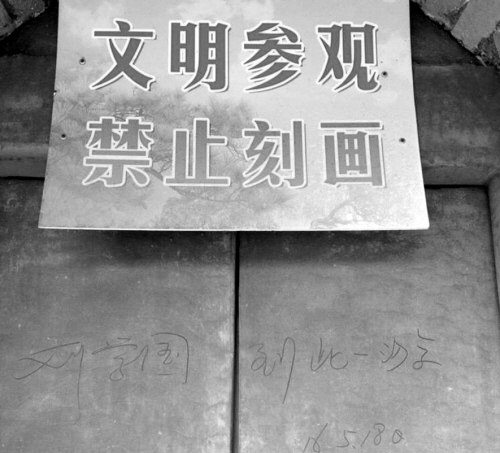 文明参观
禁止刻画
刘学国 到此一游
16.5.18